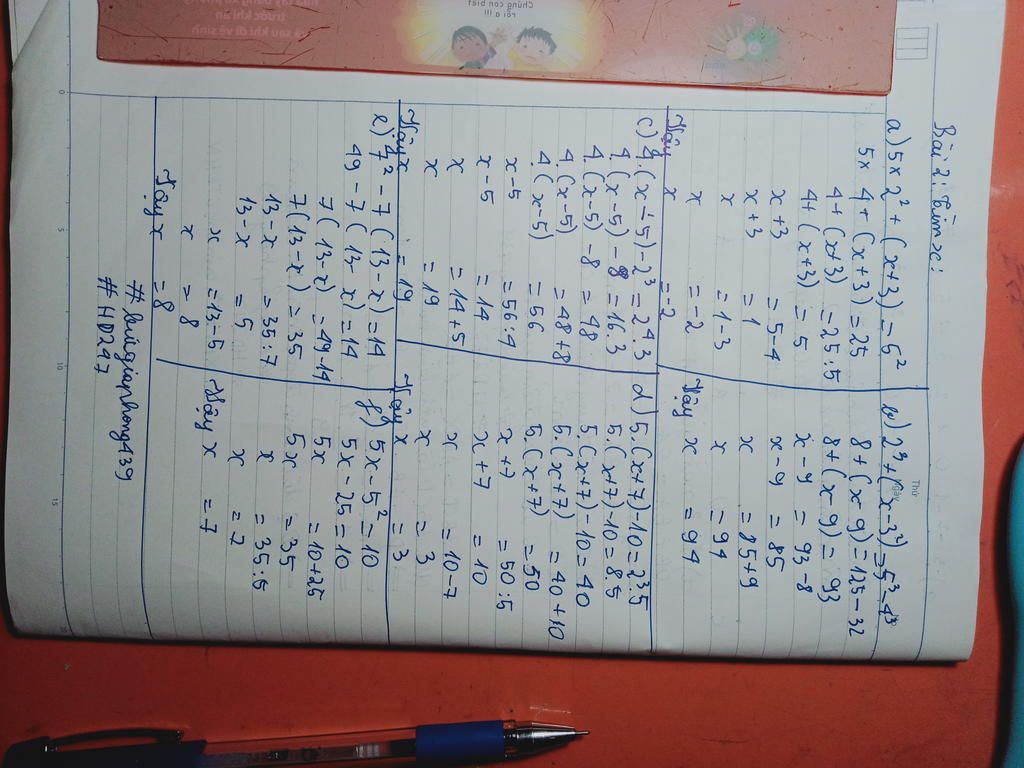 Bài 2: Tìm x:
a) 5 x 2² + (x+3) = 5²
5 x 4 + (x+3) = 25
4 + (x+3) = 25:5
4 + (x+3) = 5
x+3 = 5-4
x+3 = 1
x = 1-3
x = -2
Vậy x = -2
Thứ
Ngày
b) 2³ + (x-3²) = 5³-4³
8 + (x-9) = 125-32
8 + (x-9) = 93
x-9 = 93-8
x-9 = 85
x = 85+9
x = 94
Vậy x = 94
c) 4.(x-5)-2³ = 2⁴.3
4.(x-5)-8 = 16.3
4.(x-5)-8 = 48
4.(x-5) = 48+8
4.(x-5) = 56
x-5 = 56:4
x-5 = 14
x = 14+5
x = 19
Vậy x = 19
d) 5.(x+7)-10 = 2³.5
5.(x+7)-10 = 8.5
5.(x+7)-10 = 40
5.(x+7) = 40+10
5.(x+7) = 50
x+7 = 50:5
x+7 = 10
x = 10-7
x = 3
Vậy x = 3
e) 7² - 7(13-x) = 14
49 - 7(13-x) = 14
7(13-x) = 49-14
7(13-x) = 35
13-x = 35:7
13-x = 5
x = 13-5
x = 8
Vậy x = 8
f) 5x-5² = 10
5x-25 = 10
5x = 10+25
5x = 35
x = 35:5
x = 7
Vậy x = 7
#buigianhong439
#HD247
Chúng con biết
rồi ạ !!!
trước khi ăn
sau khi đi vệ sinh
0
5
10
15